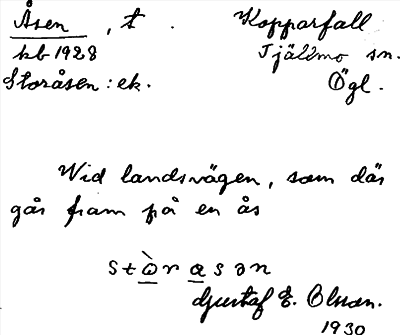 Åsen, t. Kopparfall
kb 1928 Tjällmo sn.
Storåsen: ek. Ögl.
Wid landsvägen, som där
går fram på en ås
stὼrasən
Gustaf E. Olsson.
1930